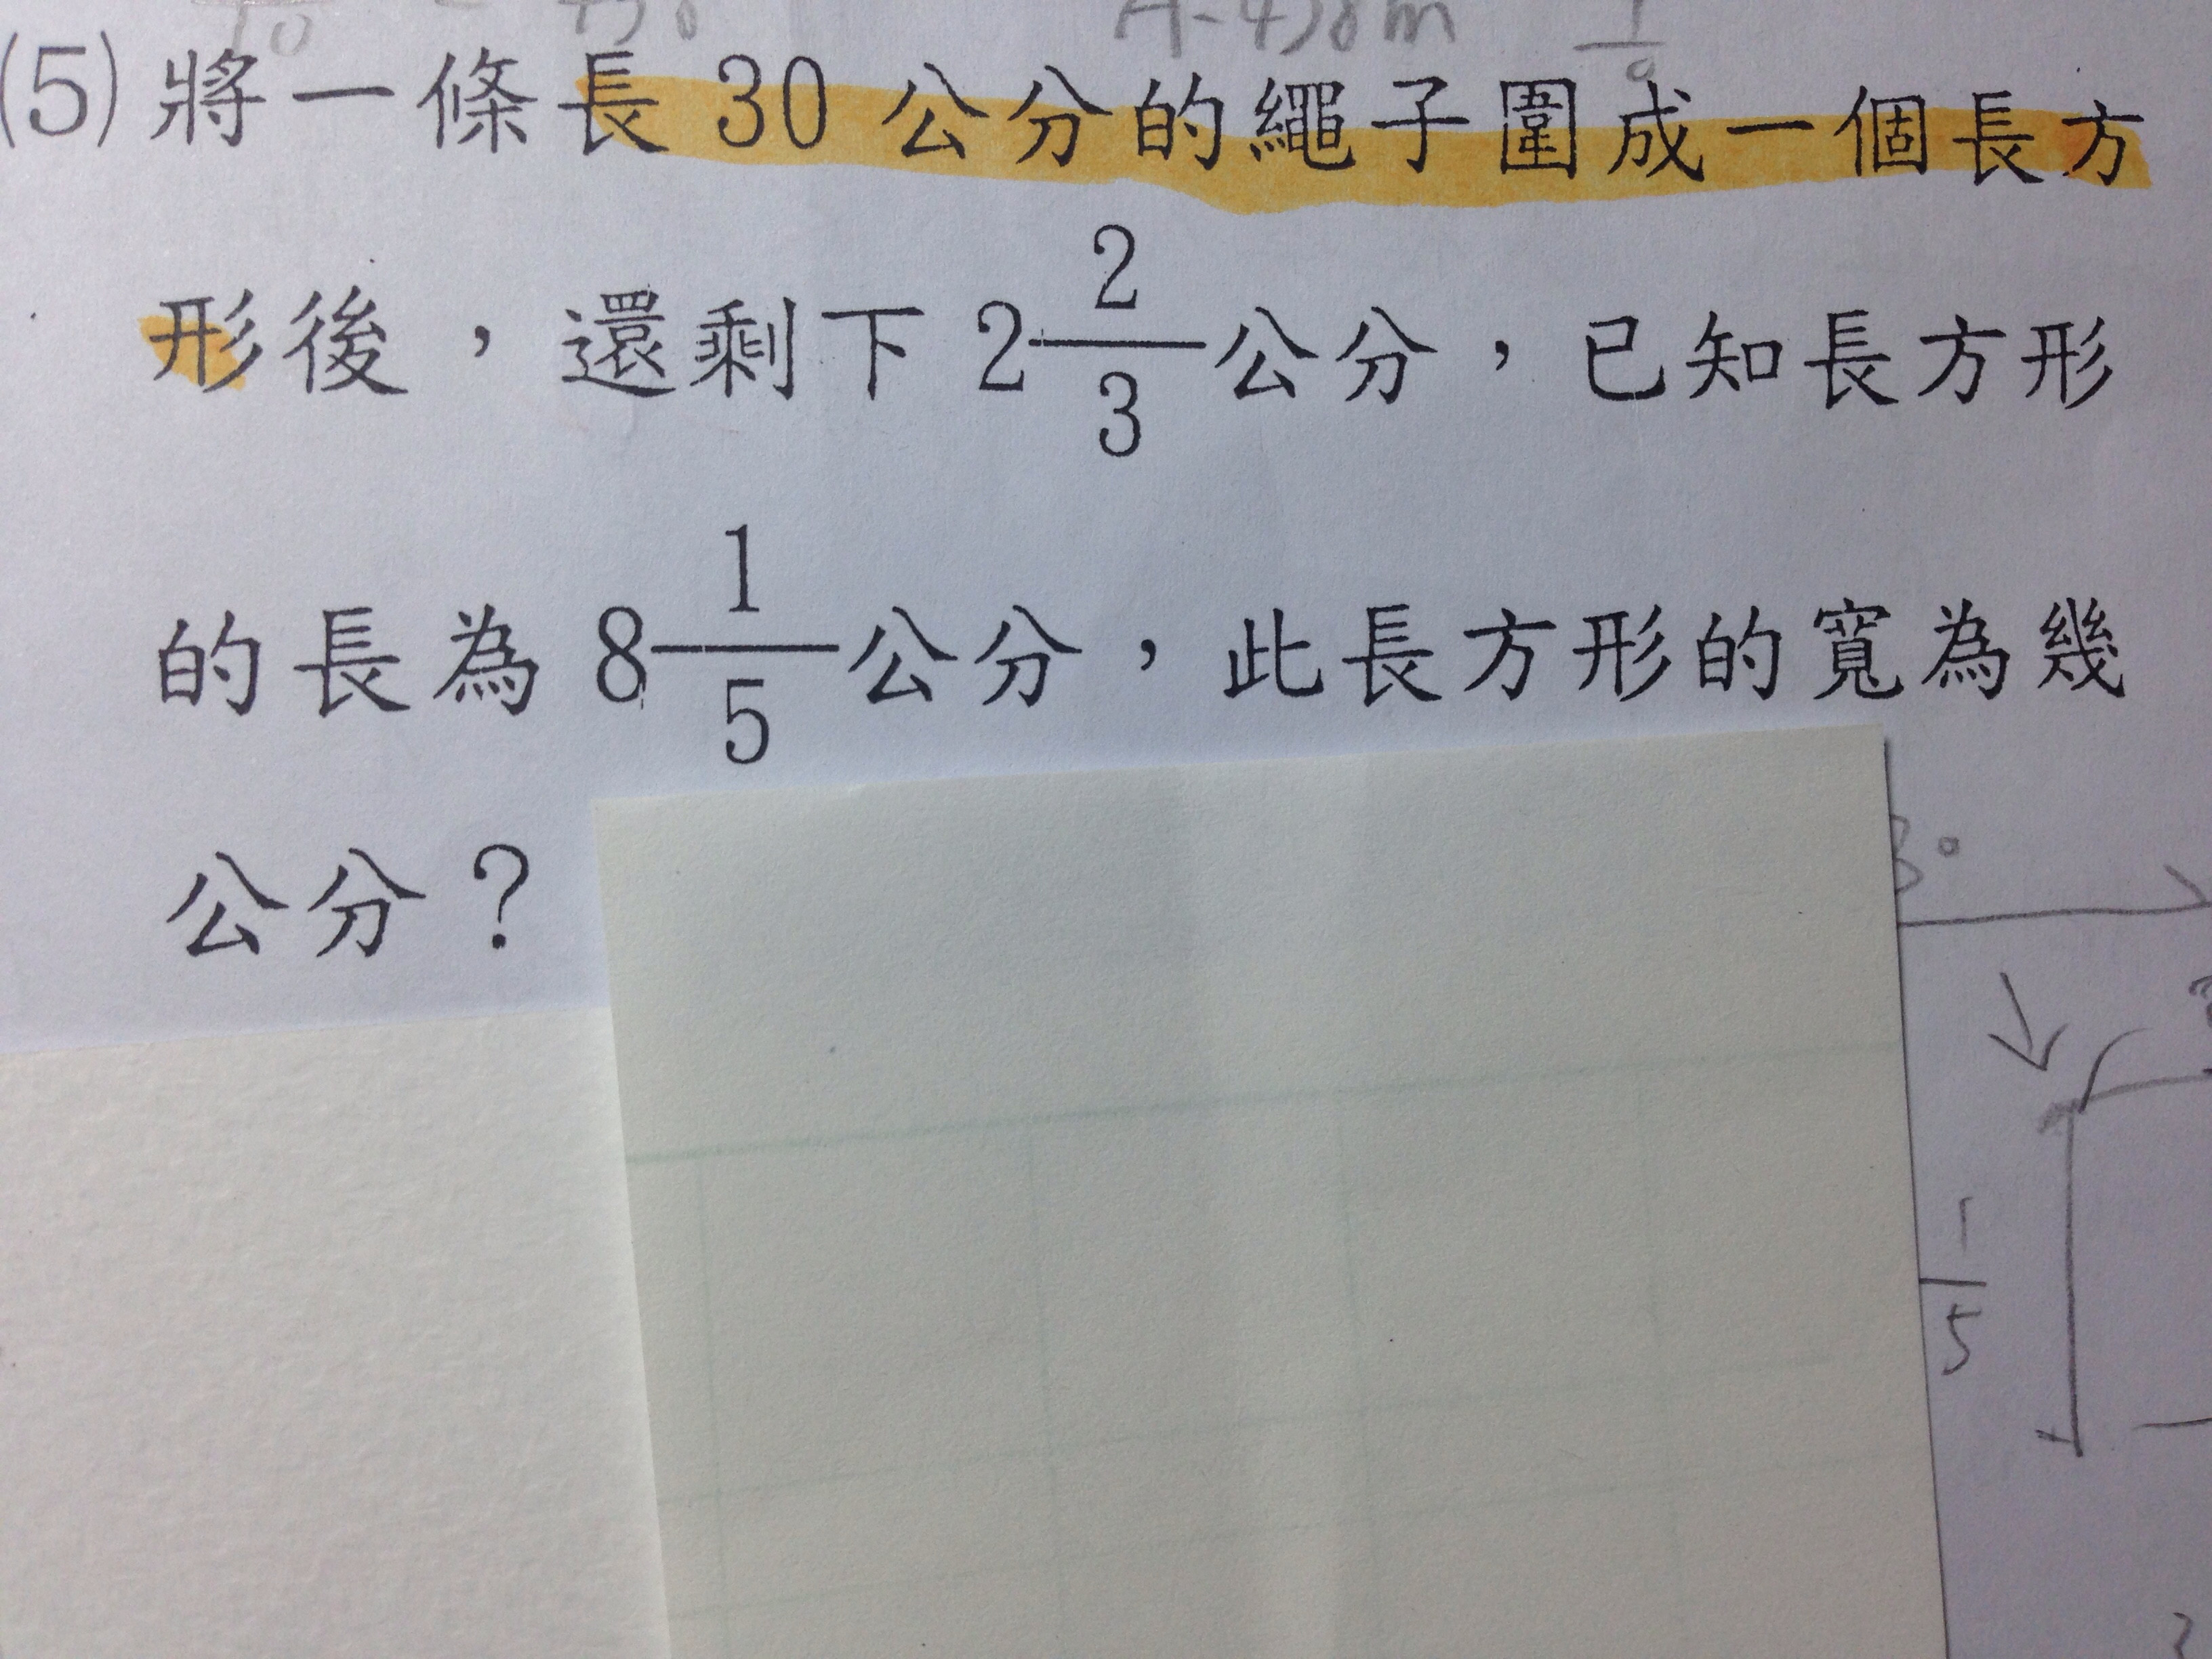 (5) 將一條長 30 公分的繩子圍成一個長方
形後，還剩下 2 2/3 公分，已知長方形
的長為 8 1/5 公分，此長方形的寬為幾
公分？
1/5